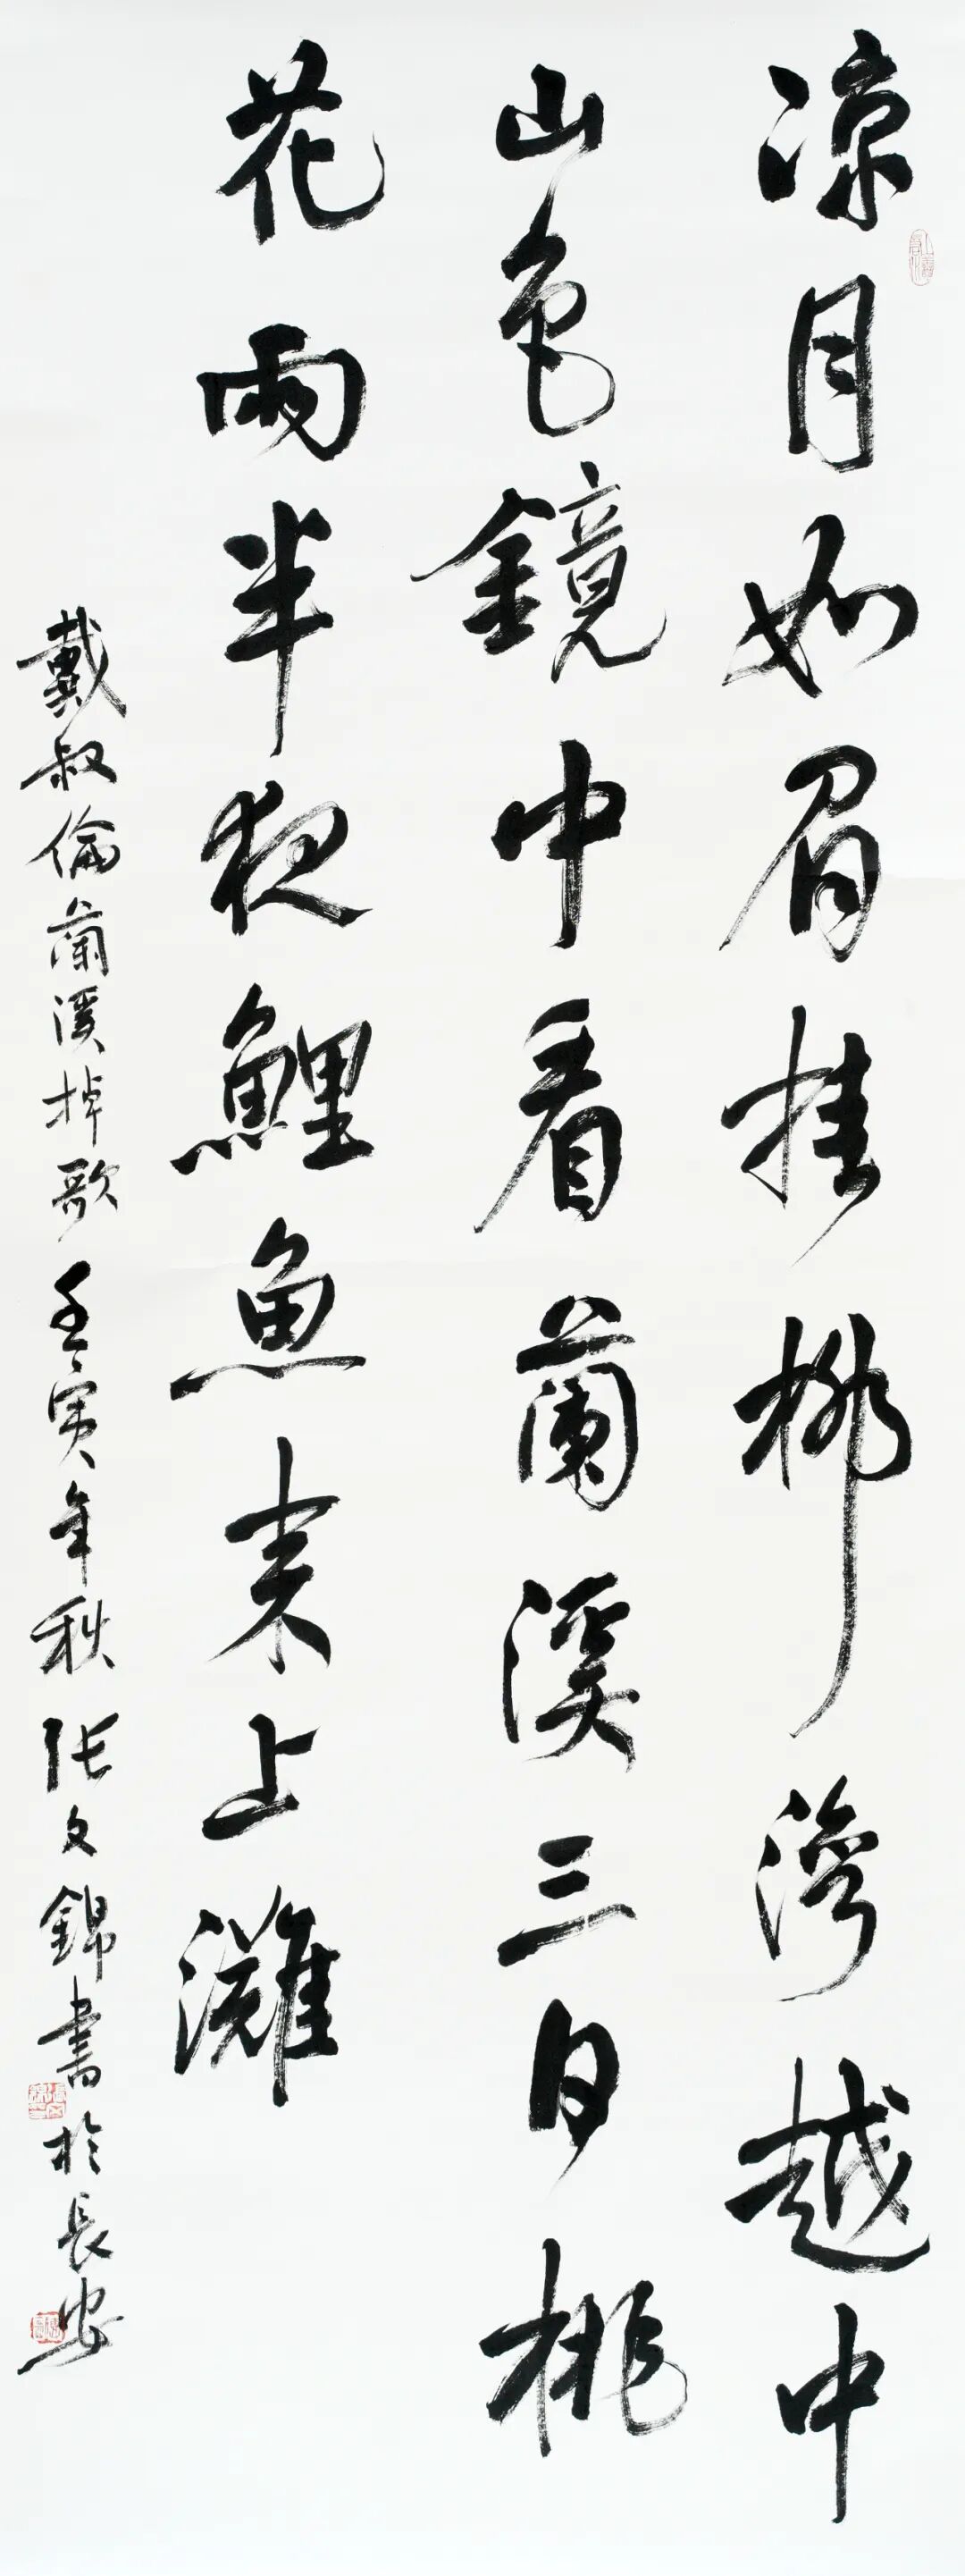 凉月如眉挂柳湾越中
山色鏡中看蘭溪三日桃
花雨半夜鯉魚来上灘
戴叔倫蘭溪棹歌壬寅年秋張文錦書於長安